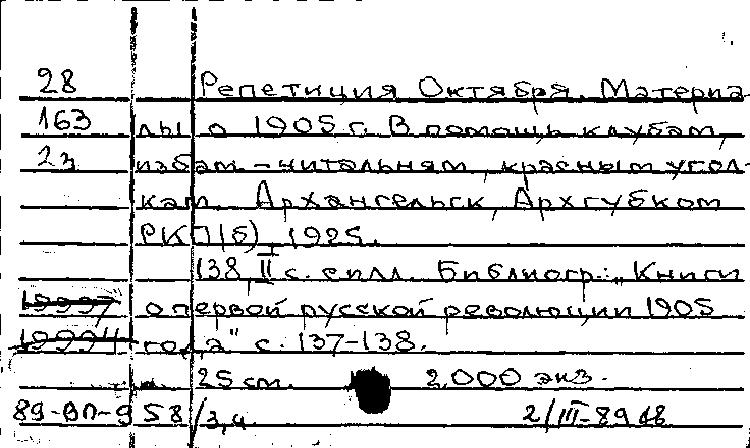 28 Репетиция Октября. Материа-
163 лы о 1905 г. В помощь клубам,
23 избам-читальням, красным угол-
кам. Архангельск, Архгубком
РКП(б), 1925.
138, II с. с илл. Библиогр.: "Книги
19997 о первой русской революции 1905
19994 года" с. 137-138.
25 см. 2.000 экз.
89-ВП-958/3,4. 2/III-89